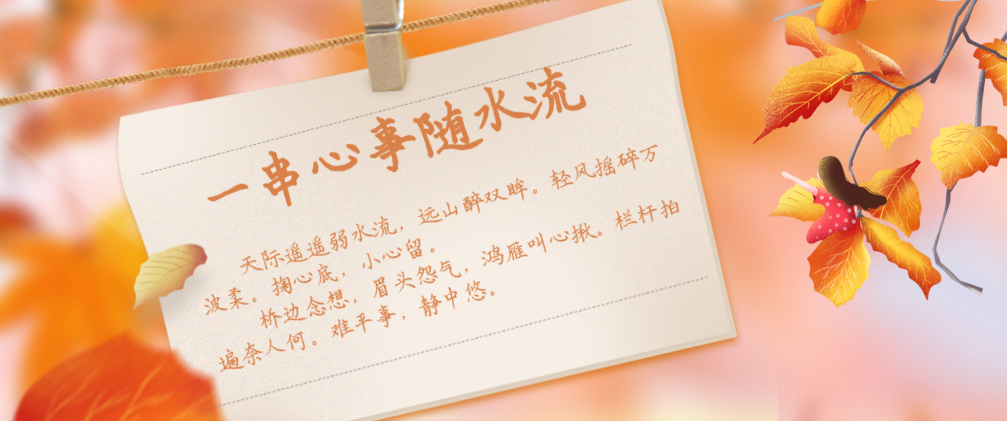 一串心事随水流
天际遥遥弱水流，远山醉双眸。轻风摇碎万
波柔。掬心底，小心留。
桥边念想，眉头怨气，鸿雁叫心揪。栏杆拍
遍奈人何。难平事，静中悠。